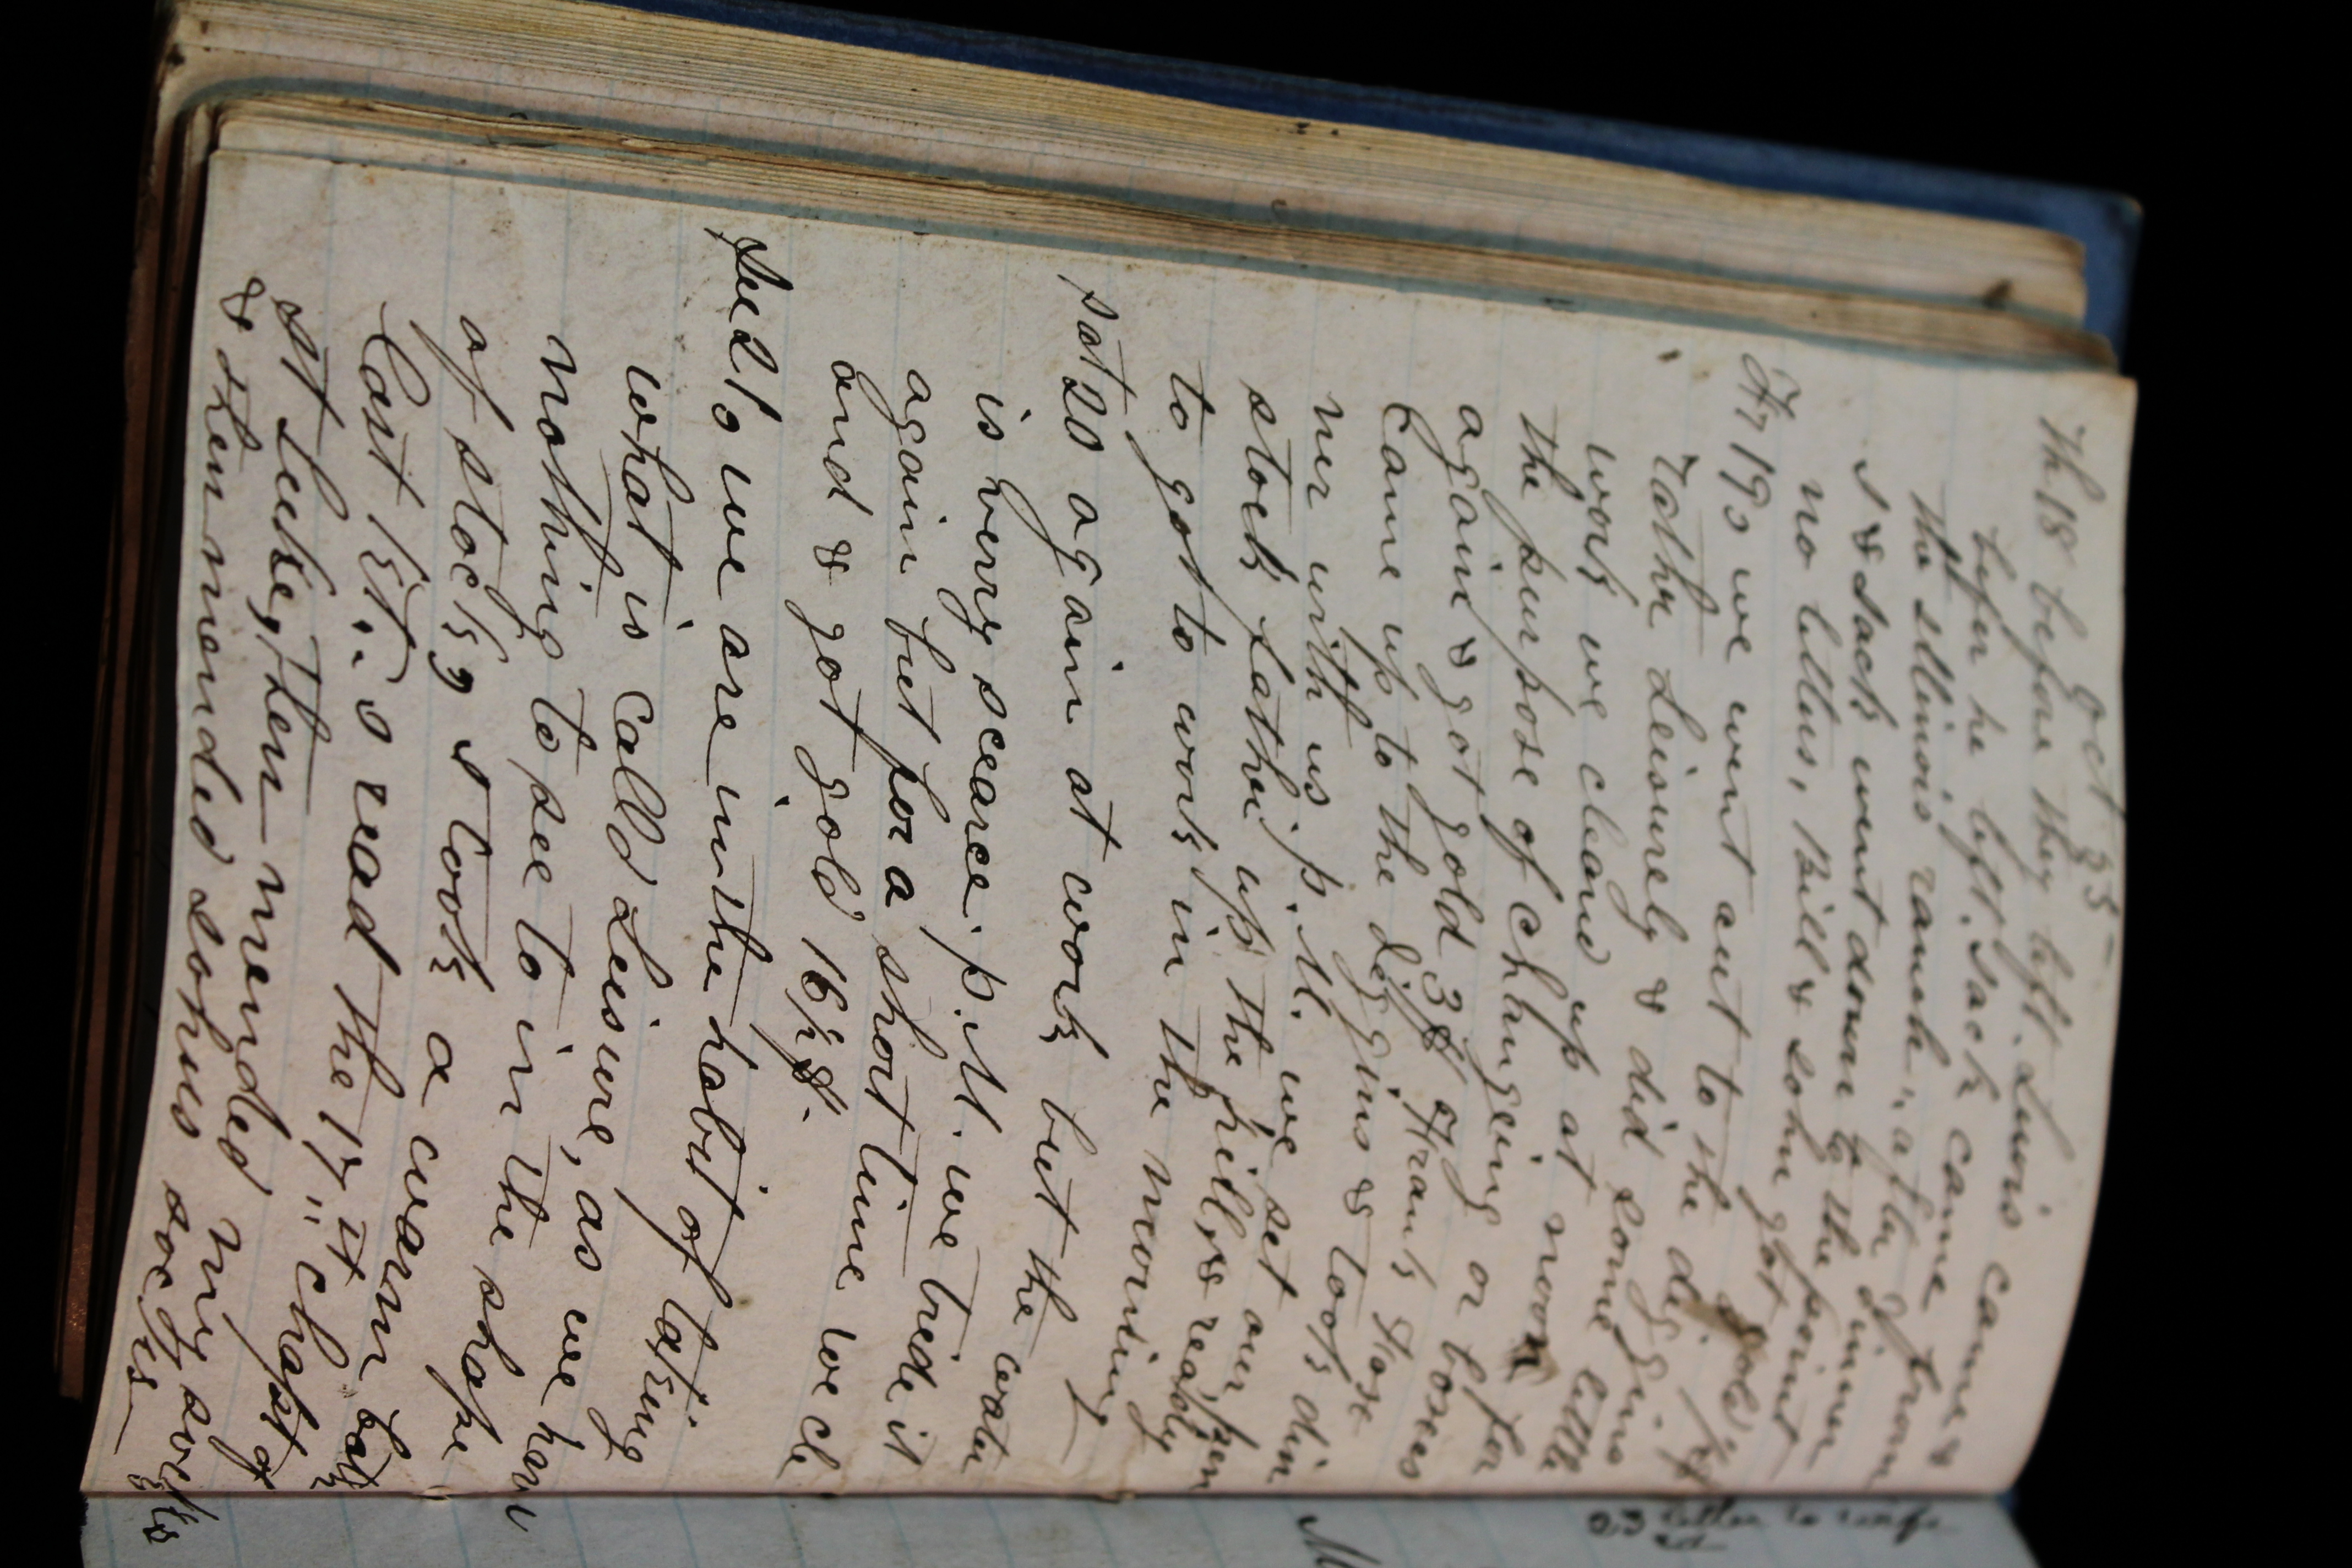 oct 55
Th 18 before they left. Lewis came &
befor he left. Jack came from
the Illinois ranch, after dinner
I & Jack went down to the point
no letters, Bill & John got gold
Fr 19, we went out to the diggins
rathr Leisurely & did some little
work we cleand up at noon for
the purpose of changeing or boxes
again & got gold 3$ Frank Hose
came up to the diggins & took din
ner with us. P.M. we set our, pen
stock father up the hill, & ready
to go to work in the morning
Sat 20 again at work but the water
is verry scearce. P.M. we tride it
again but for a short time we cle
and & got gold 16½$-
Su 21, we are in the habit of taking
what is calld Leisure, as we have
nothing to see to in the shape
of stock, I took a warm bath
last kt.. I read the 17st chapt of
St Luke, then mended my socks
& then mended Johns socks